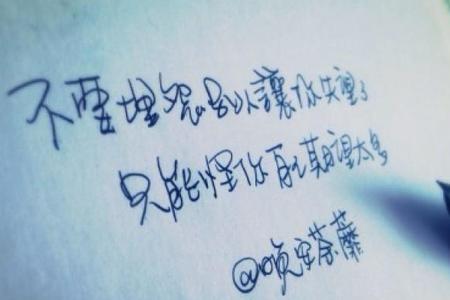 不要埋怨別人讓你失望了
只能怪你自己期望太多
@晚安荼蘼